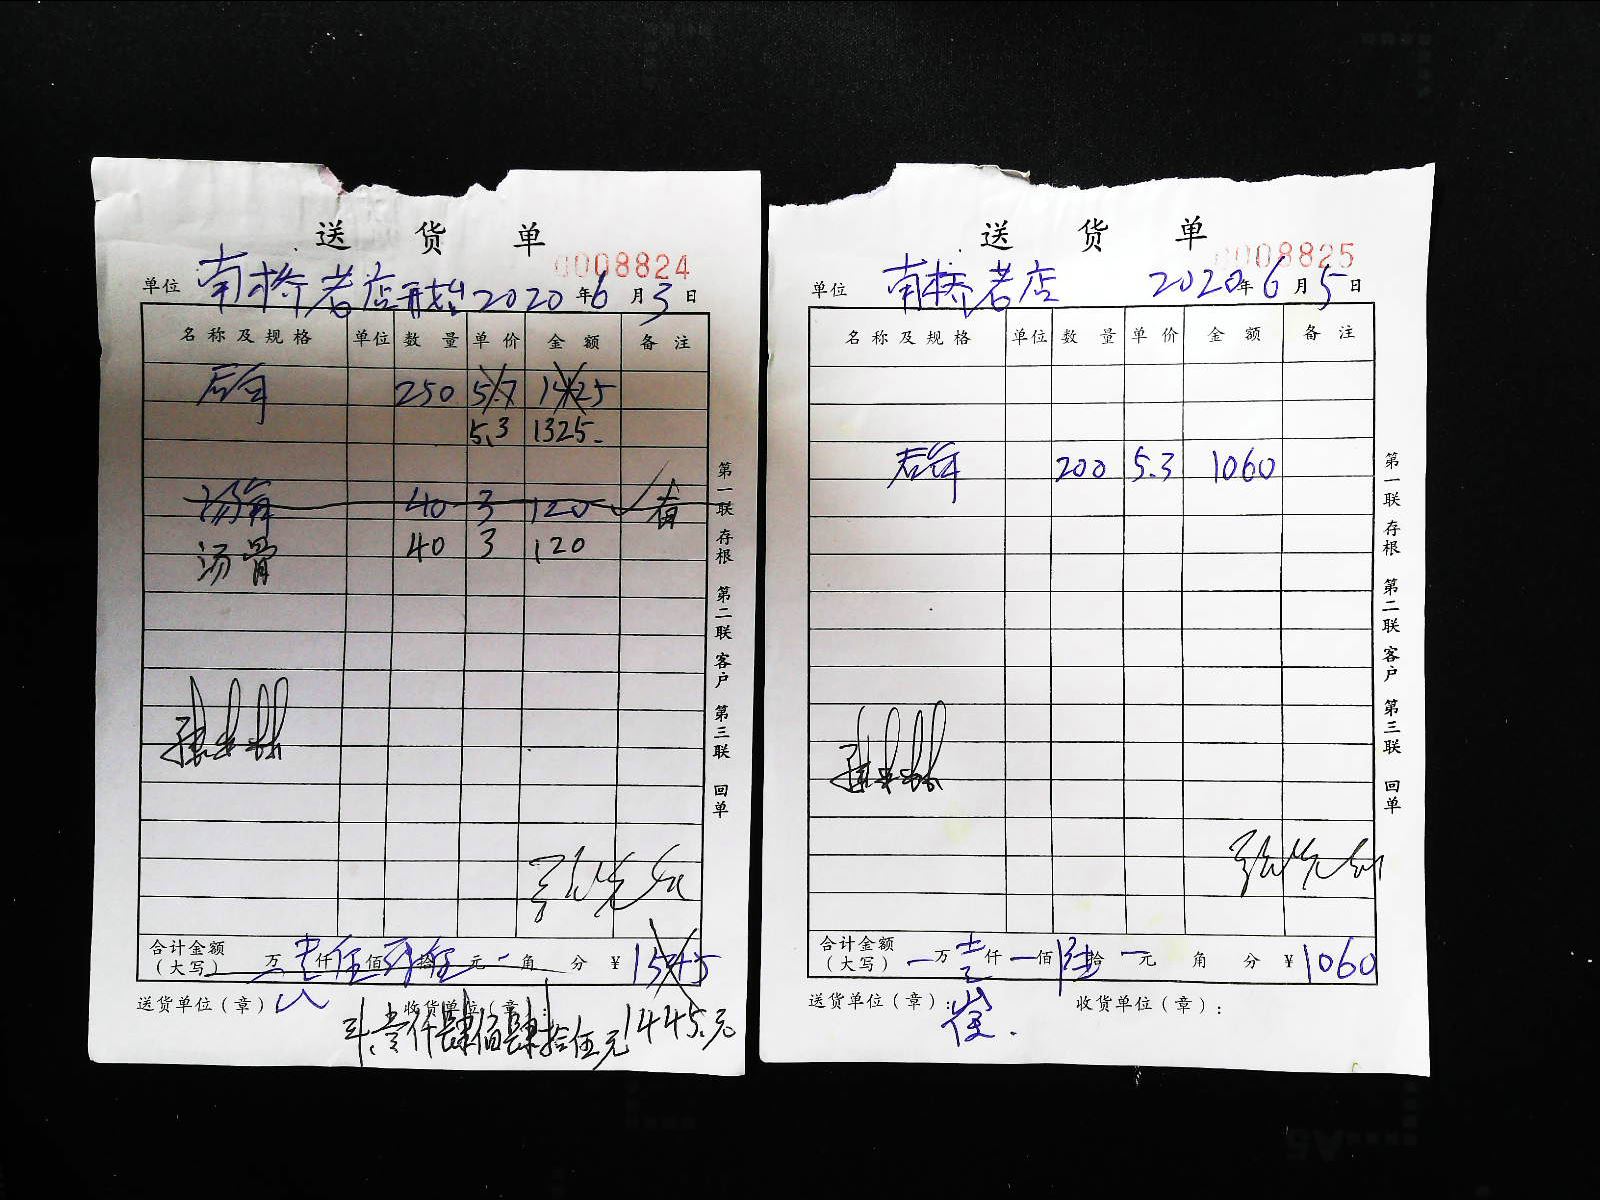 送货单
0008824
单位 南桥老店 2020年6月3日
名称及规格 单位 数量 单价 金额 备注
250 5.7 1425
5.3 1325.
40 3 120
汤骨 40 3 120
合计金额(大写) 万 仟 佰 拾 元 角 分 ¥1545
送货单位(章) 收货单位(章):
壹仟肆佰肆拾伍元 1445.元
第一联 存根 第二联 客户 第三联 回单
送货单
0008825
单位 南桥老店 2020年6月5日
名称及规格 单位 数量 单价 金额 备注
200 5.3 1060
合计金额(大写) 万壹仟 佰陆拾 元 角 分 ¥1060
送货单位(章): 收货单位(章):
第一联 存根 第二联 客户 第三联 回单